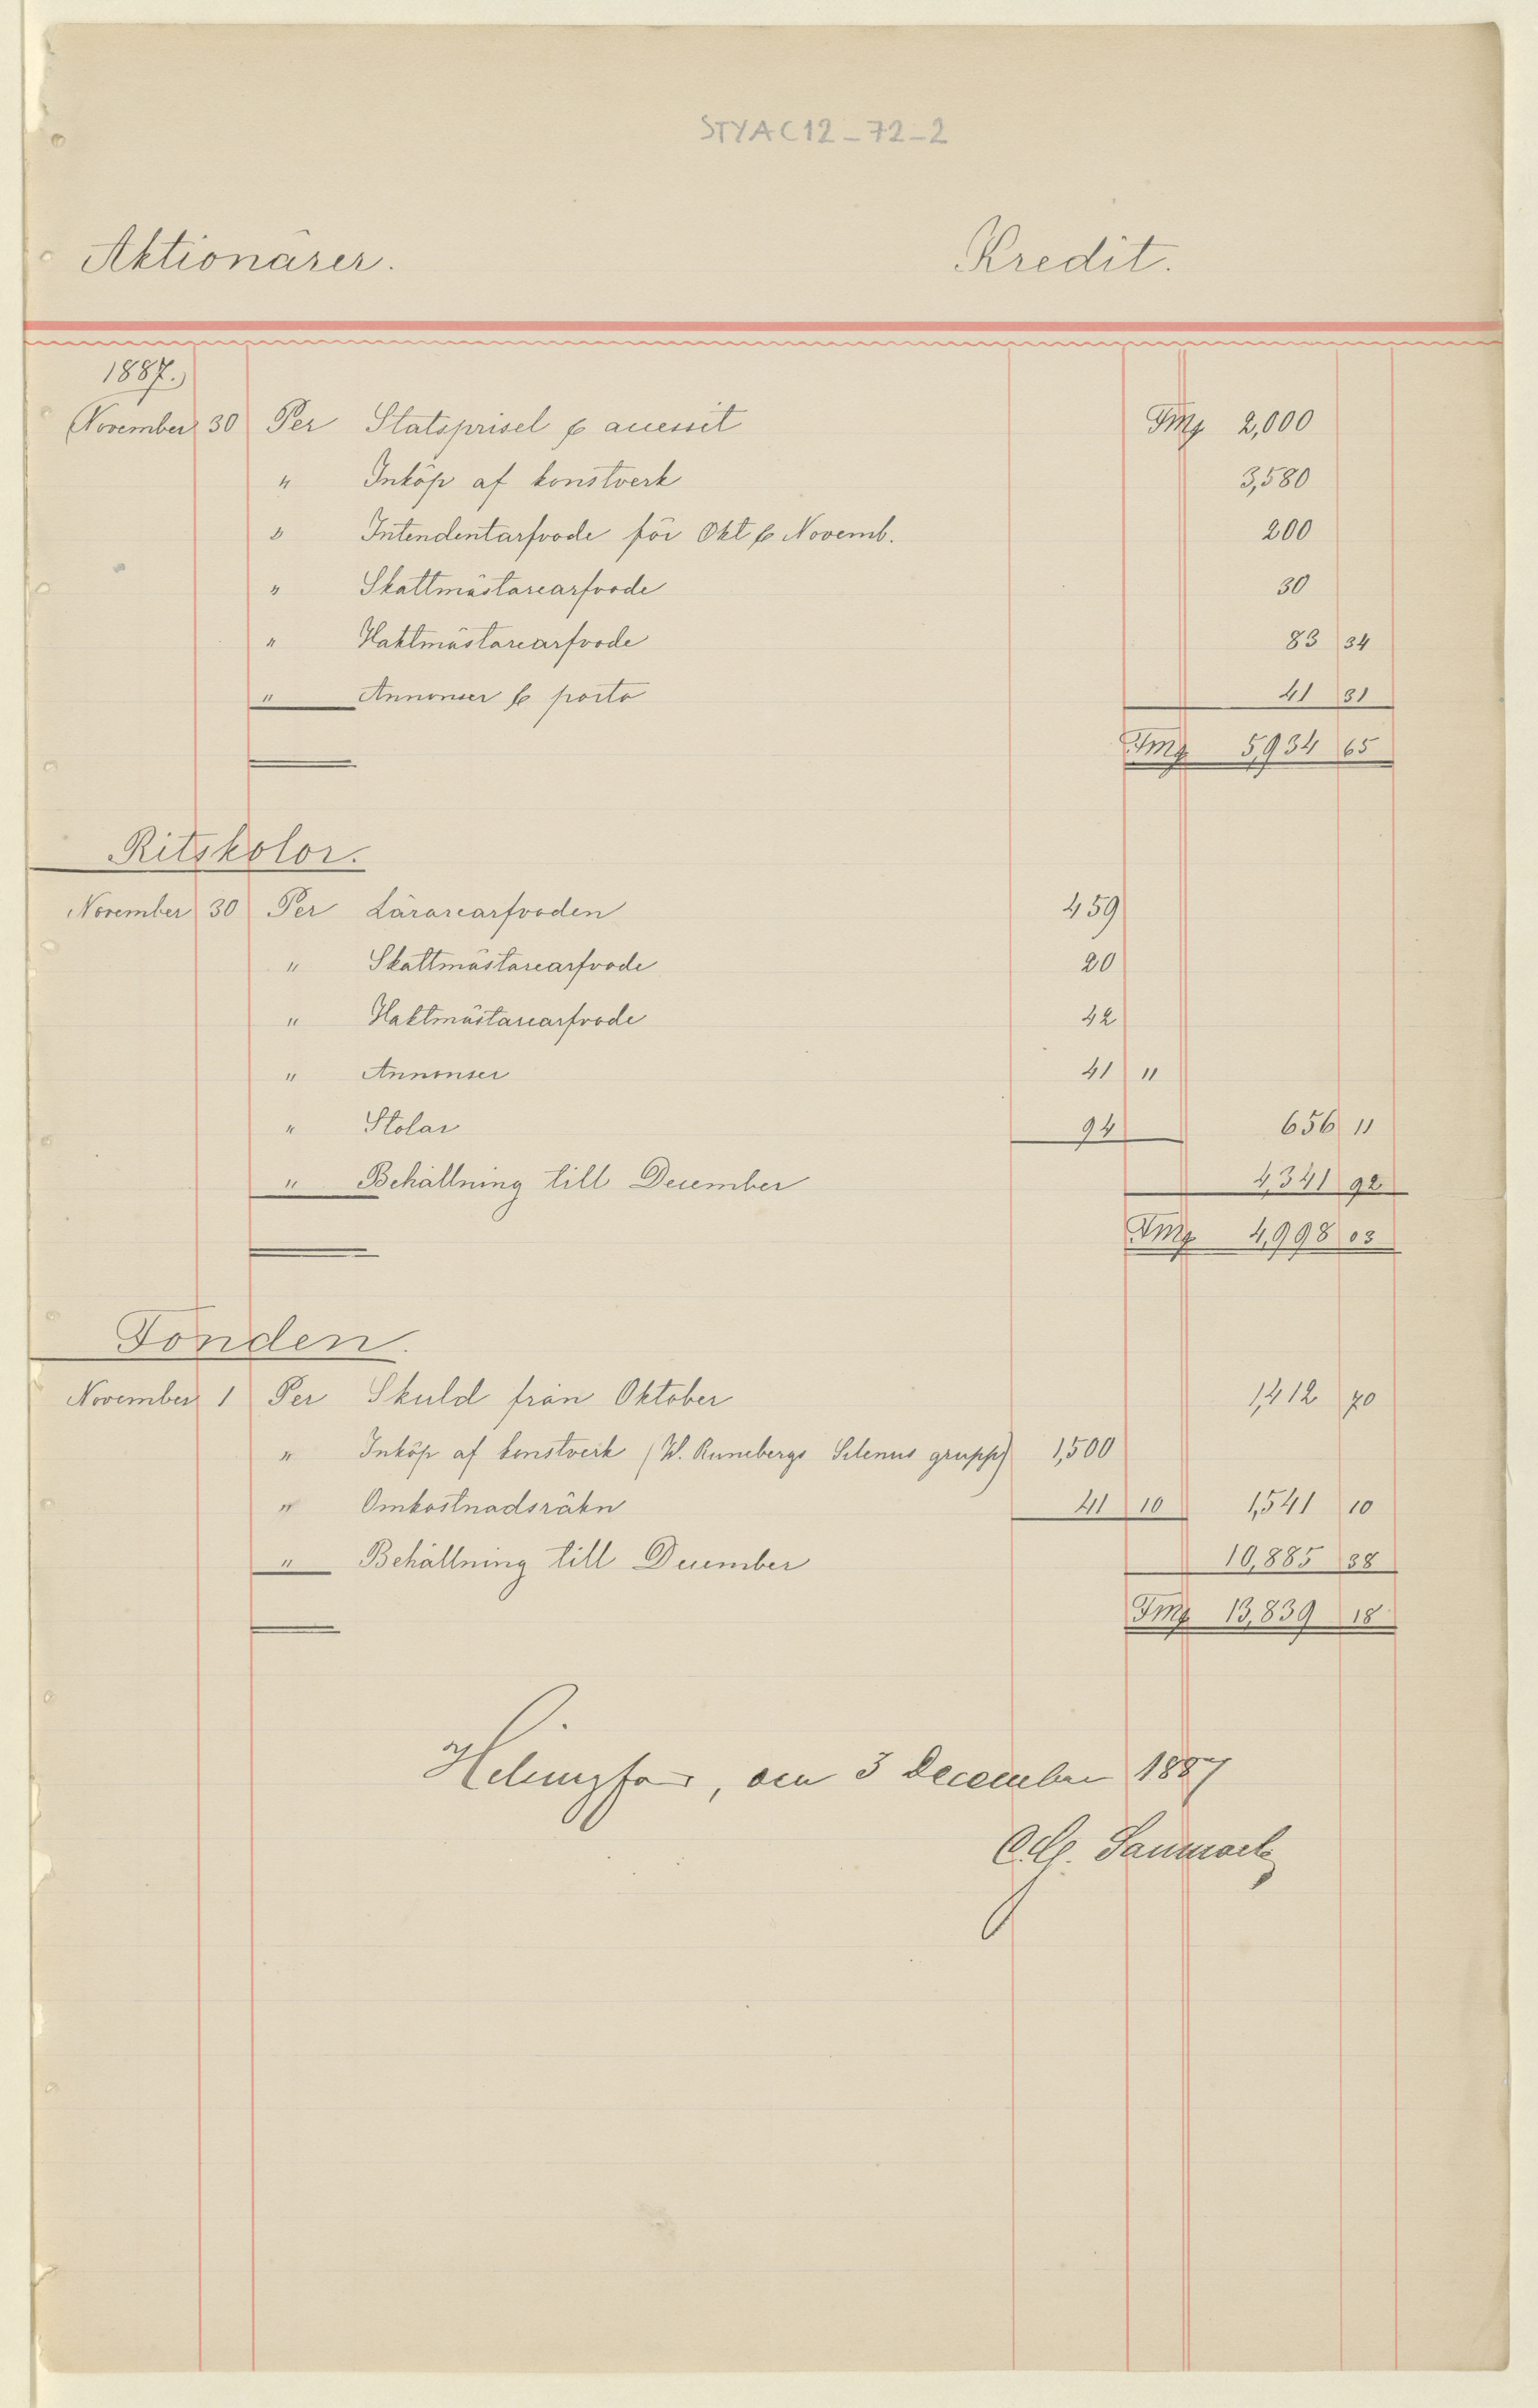 STYAC12_72_2
Aktionärer. Kredit.
1887.
November 30 Per Statsprisel & accessit Fmg 2,000
" Inköp af konstverk 3,580
" Intendentarfvode för Okt & Novemb. 200
" Skattmästarearfvode 30
" Vaktmästarearfvode 83 34
" Annonser & porto 41 31
Fmg 5,934 65
Ritskolor.
November 30 Per Lärarearfvoden 459
" Skattmästarearfvode 20
" Vaktmästarearfvode 42
" Annonser 41 11
" Stolar 94 656 11
" Behållning till December 4,341 92
Fmg 4,998 03
Fonden.
November 1 Per Skuld från Oktober 1,412 70
" Inköp af konstverk (W. Runebergs Silenus grupp) 1,500
" Omkostnadsräkn 41 10 1,541 10
" Behållning till December 10,885 38
Fmg 13,839 18
Helsingfors, den 3 December 1887